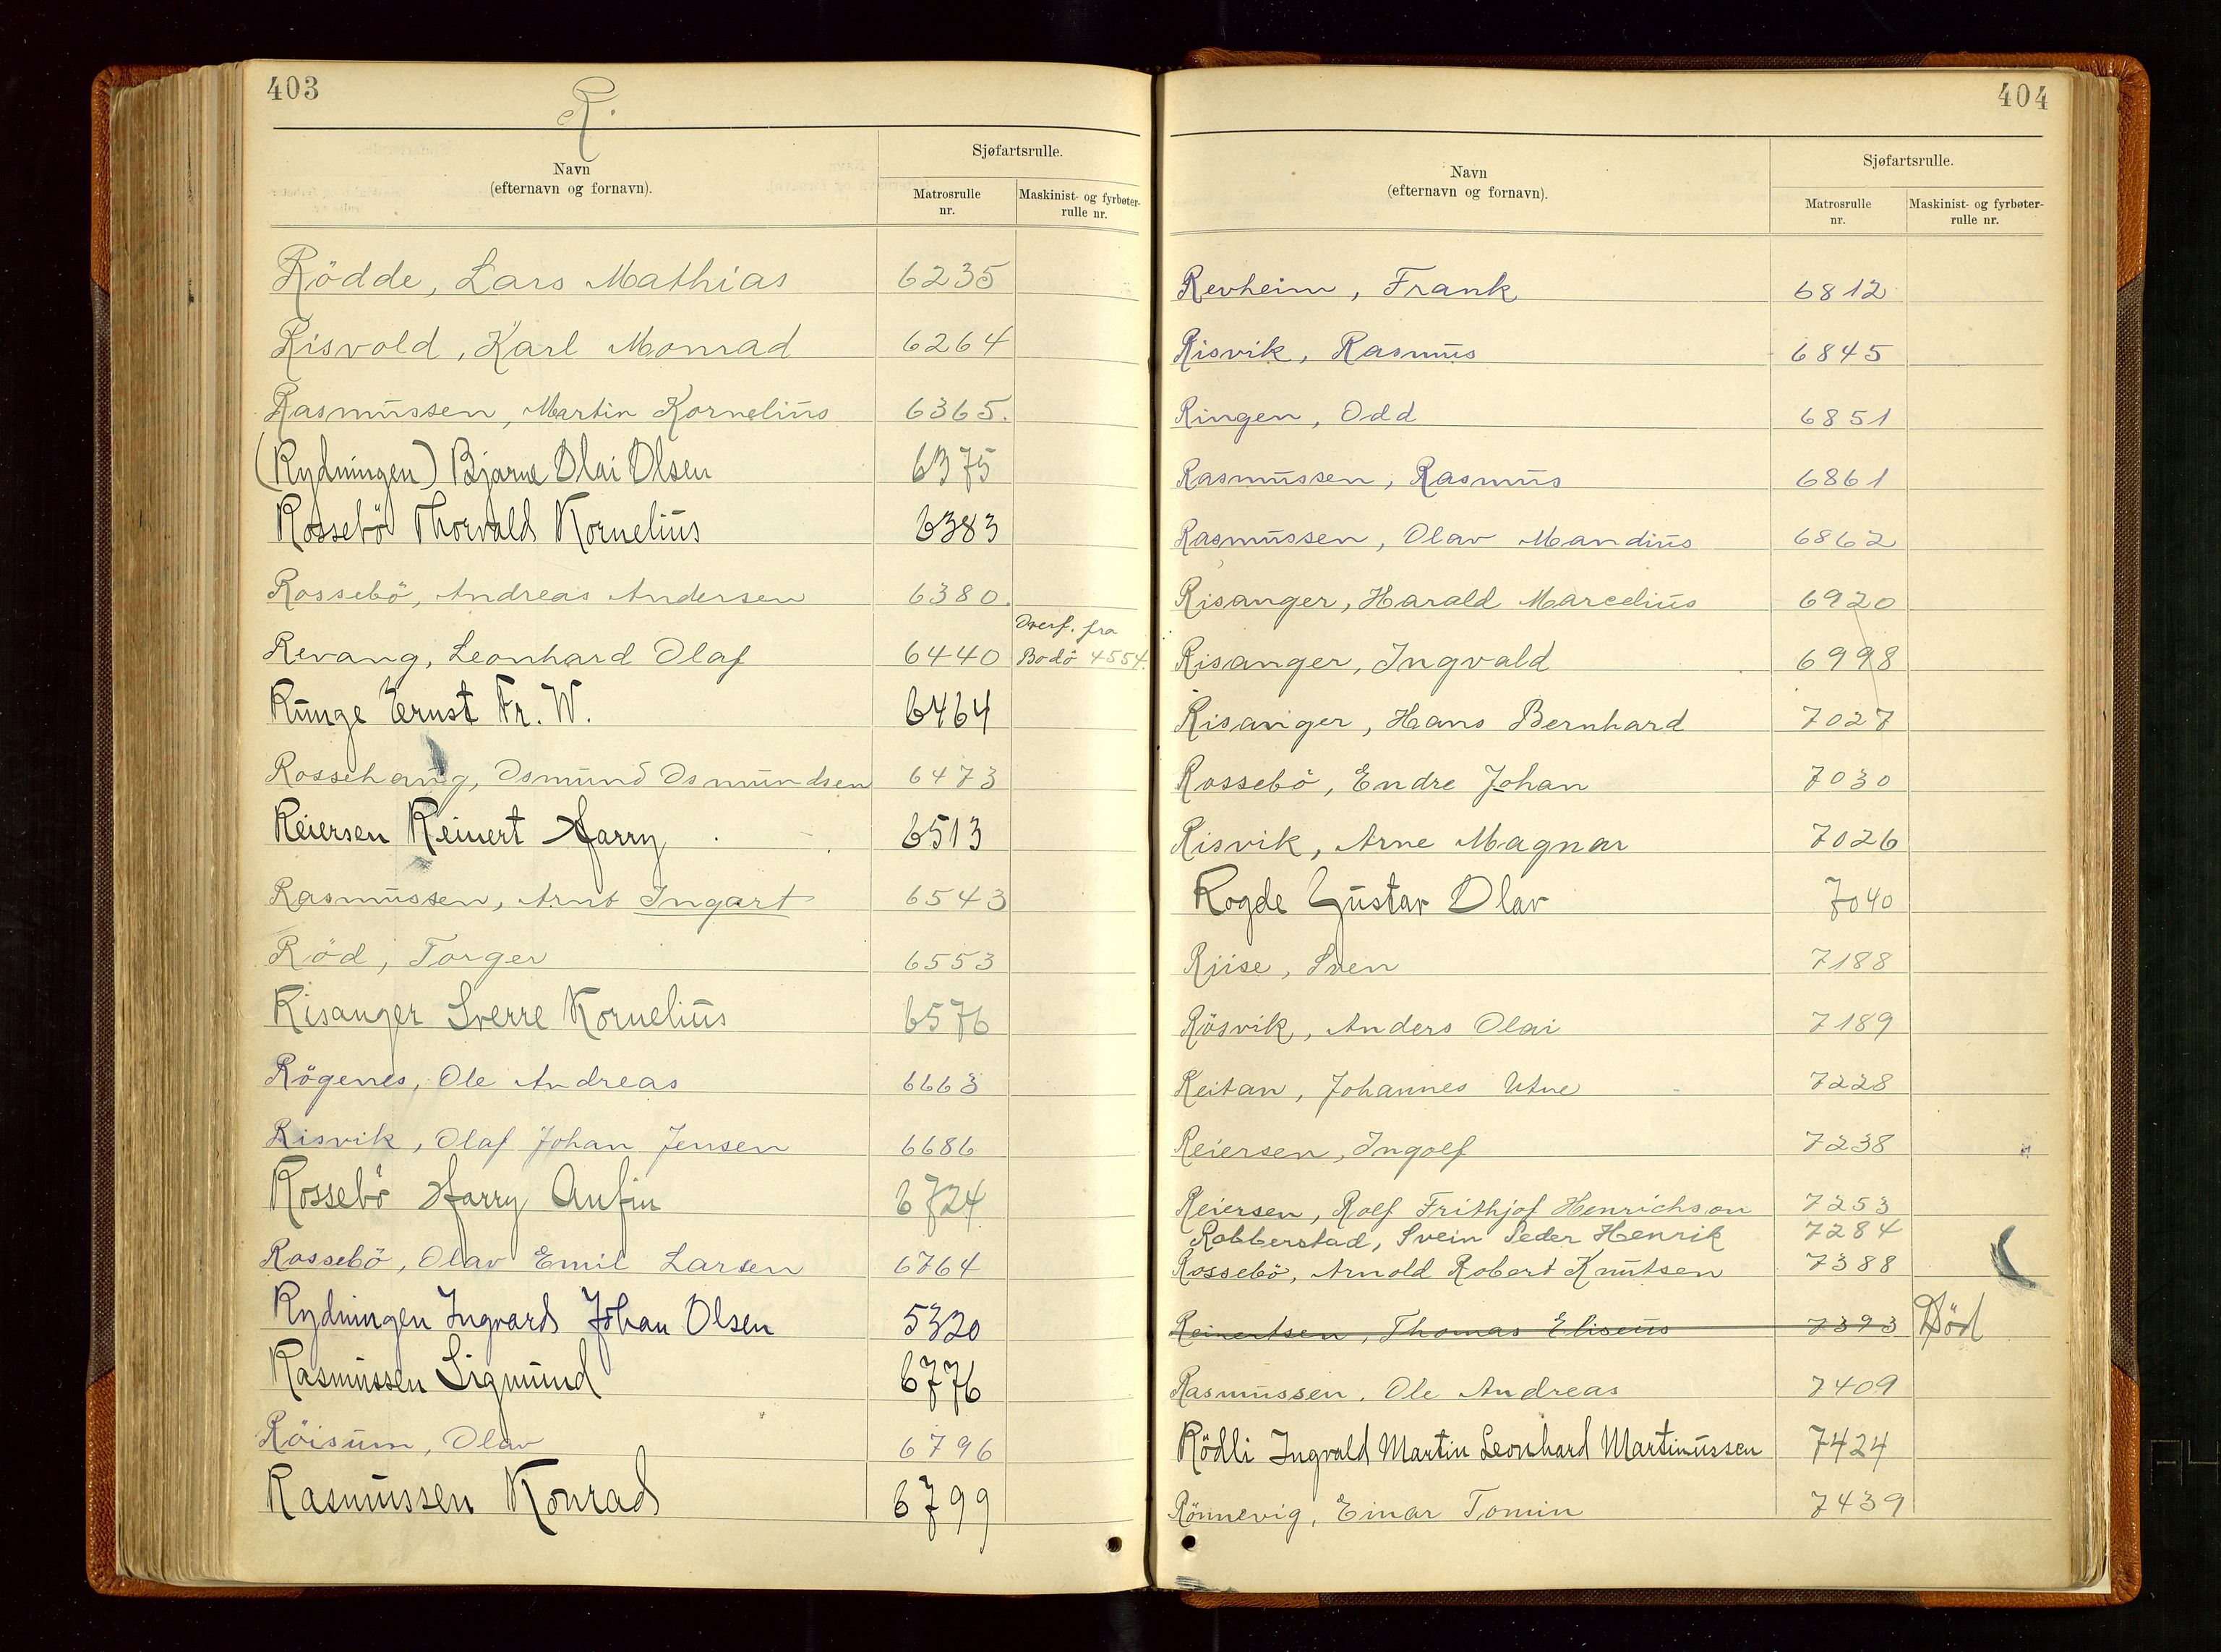 403
R.
Navn
(efternavn og fornavn).
Sjøfartsrulle.
Matrosrulle nr.
Maskinist- og fyrbøter-rulle nr.
Rödde, Lars Mathias 6235
Risvold, Karl Monrad 6264
Rasmussen, Martin Kornelius 6365.
(Rydningen) Bjarne Olai Olsen 6375
Rossebö Thorvald Kornelius 6383
Rossebö, Andreas Andersen 6380.
Overf. fra
Revang, Leonhard Olaf 6440 Bodö 4554.
Runge Ernst Fr. W. 6464
Rossehaug, Osmund Osmundsen 6473
Reiersen Reinert Harry 6513
Rasmussen, Arnt Ingart 6543
Röd, Torger 6553
Risanger Sverre Kornelius 6576
Rögenes, Ole Andreas 6663
Risvik, Olaf Johan Jensen 6686
Rossebö Harry Anfin 6724
Rossebö, Olav Emil Larsen 6764
Rydningen Ingvard Johan Olsen 5320
Rasmussen Sigmund 6776
Röisum, Olav 6796
Rasmussen Konrad 6799
404
Navn
(efternavn og fornavn).
Sjøfartsrulle.
Matrosrulle nr.
Maskinist- og fyrbøter-rulle nr.
Revheim, Frank 6812
Risvik, Rasmus 6845
Ringen, Odd 6851
Rasmussen, Rasmus 6861
Rasmussen, Olav Mandius 6862
Risanger, Harald Marcelius 6920
Risanger, Ingvald 6998
Risanger, Hans Bernhard 7027
Rossebö, Endre Johan 7030
Risvik, Arne Magnar 7026
Rogde Gustav Olav 7040
Riise, Sven 7188
Rösvik, Anders Olai 7189
Reitan, Johannes Utne 7228
Reiersen, Ingolf 7238
Reiersen, Rolf Frithjof Henrichson 7253
Robberstad, Svein Peder Henrik 7284
Rossebö, Arnold Robert Knutsen 7388
Reinertsen, Thomas Eliseus 7393 Död
Rasmussen, Ole Andreas 7409
Rödli Ingvald Martin Leonhard Martinussen 7424
Rönnevig, Einar Tomin 7439